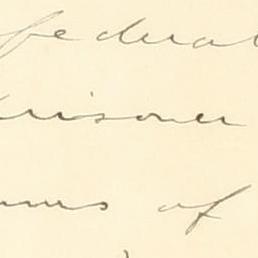 federal
prisoner
of